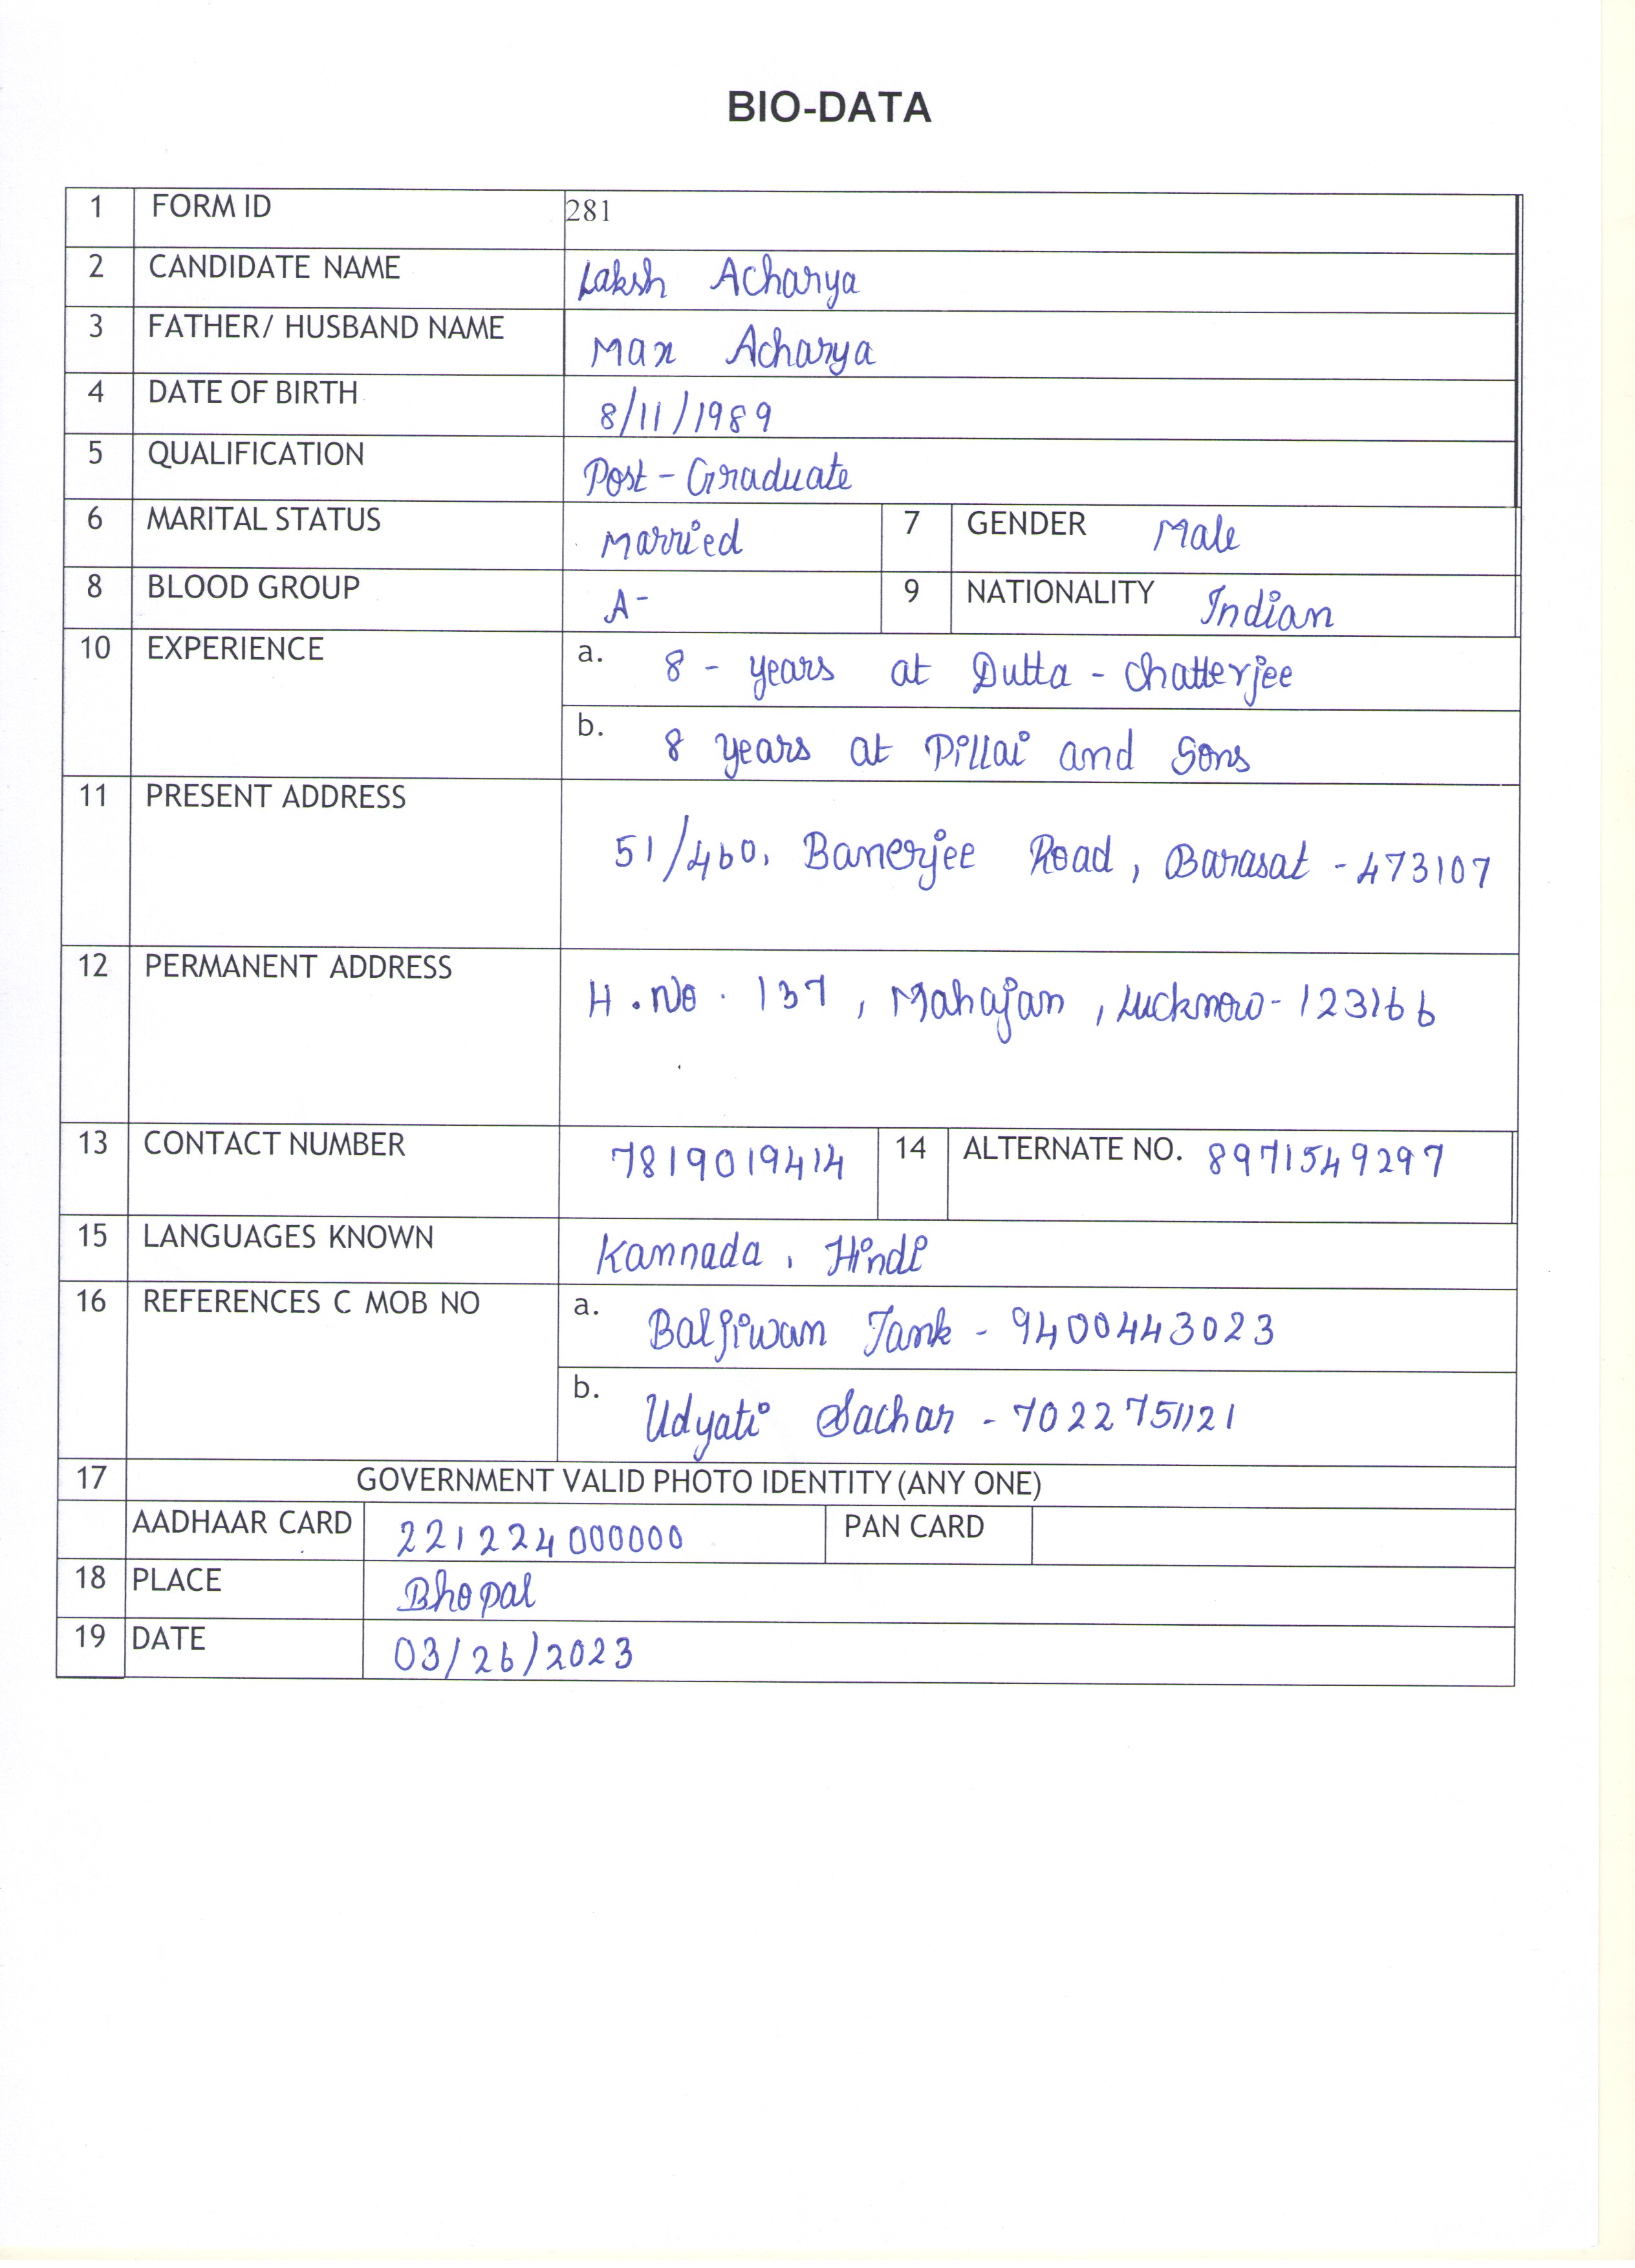 BIO-DATA
1 FORM ID 281
2 CANDIDATE NAME Laksh Acharya
3 FATHER/ HUSBAND NAME Max Acharya
4 DATE OF BIRTH 8/11/1989
5 QUALIFICATION Post-Graduate
6 MARITAL STATUS Married 7 GENDER Male
8 BLOOD GROUP A- 9 NATIONALITY Indian
10 EXPERIENCE a. 8 - years at Dutta - Chatterjee
b. 8 years at Pillai and Sons
11 PRESENT ADDRESS
51/460, Banerjee Road, Barasat - 473107
12 PERMANENT ADDRESS
H.No. 137, Mahajan, Lucknow - 123166
13 CONTACT NUMBER 7819019414 14 ALTERNATE NO. 8971549297
15 LANGUAGES KNOWN Kannada, Hindi
16 REFERENCES C MOB NO a. Baljiwan Tank - 9400443023
b. Udyati Sachar - 7022751121
17 GOVERNMENT VALID PHOTO IDENTITY (ANY ONE)
AADHAAR CARD 221224000000 PAN CARD
18 PLACE Bhopal
19 DATE 03/26/2023